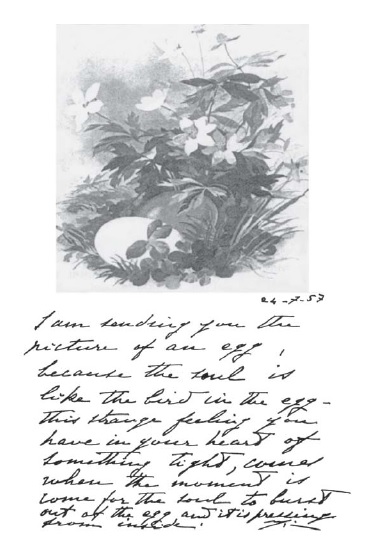 24-7-57
I am sending you the
picture of an egg,
because the soul is
like the bird in the egg -
this strange feeling you
have in your heart of
something tight, comes
when the moment is
come for the soul to burst
out of the egg and it is pressing
from inside.